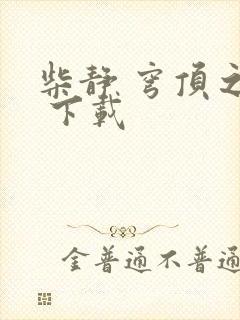 柴静 穹頂之
下載
金普通不普通